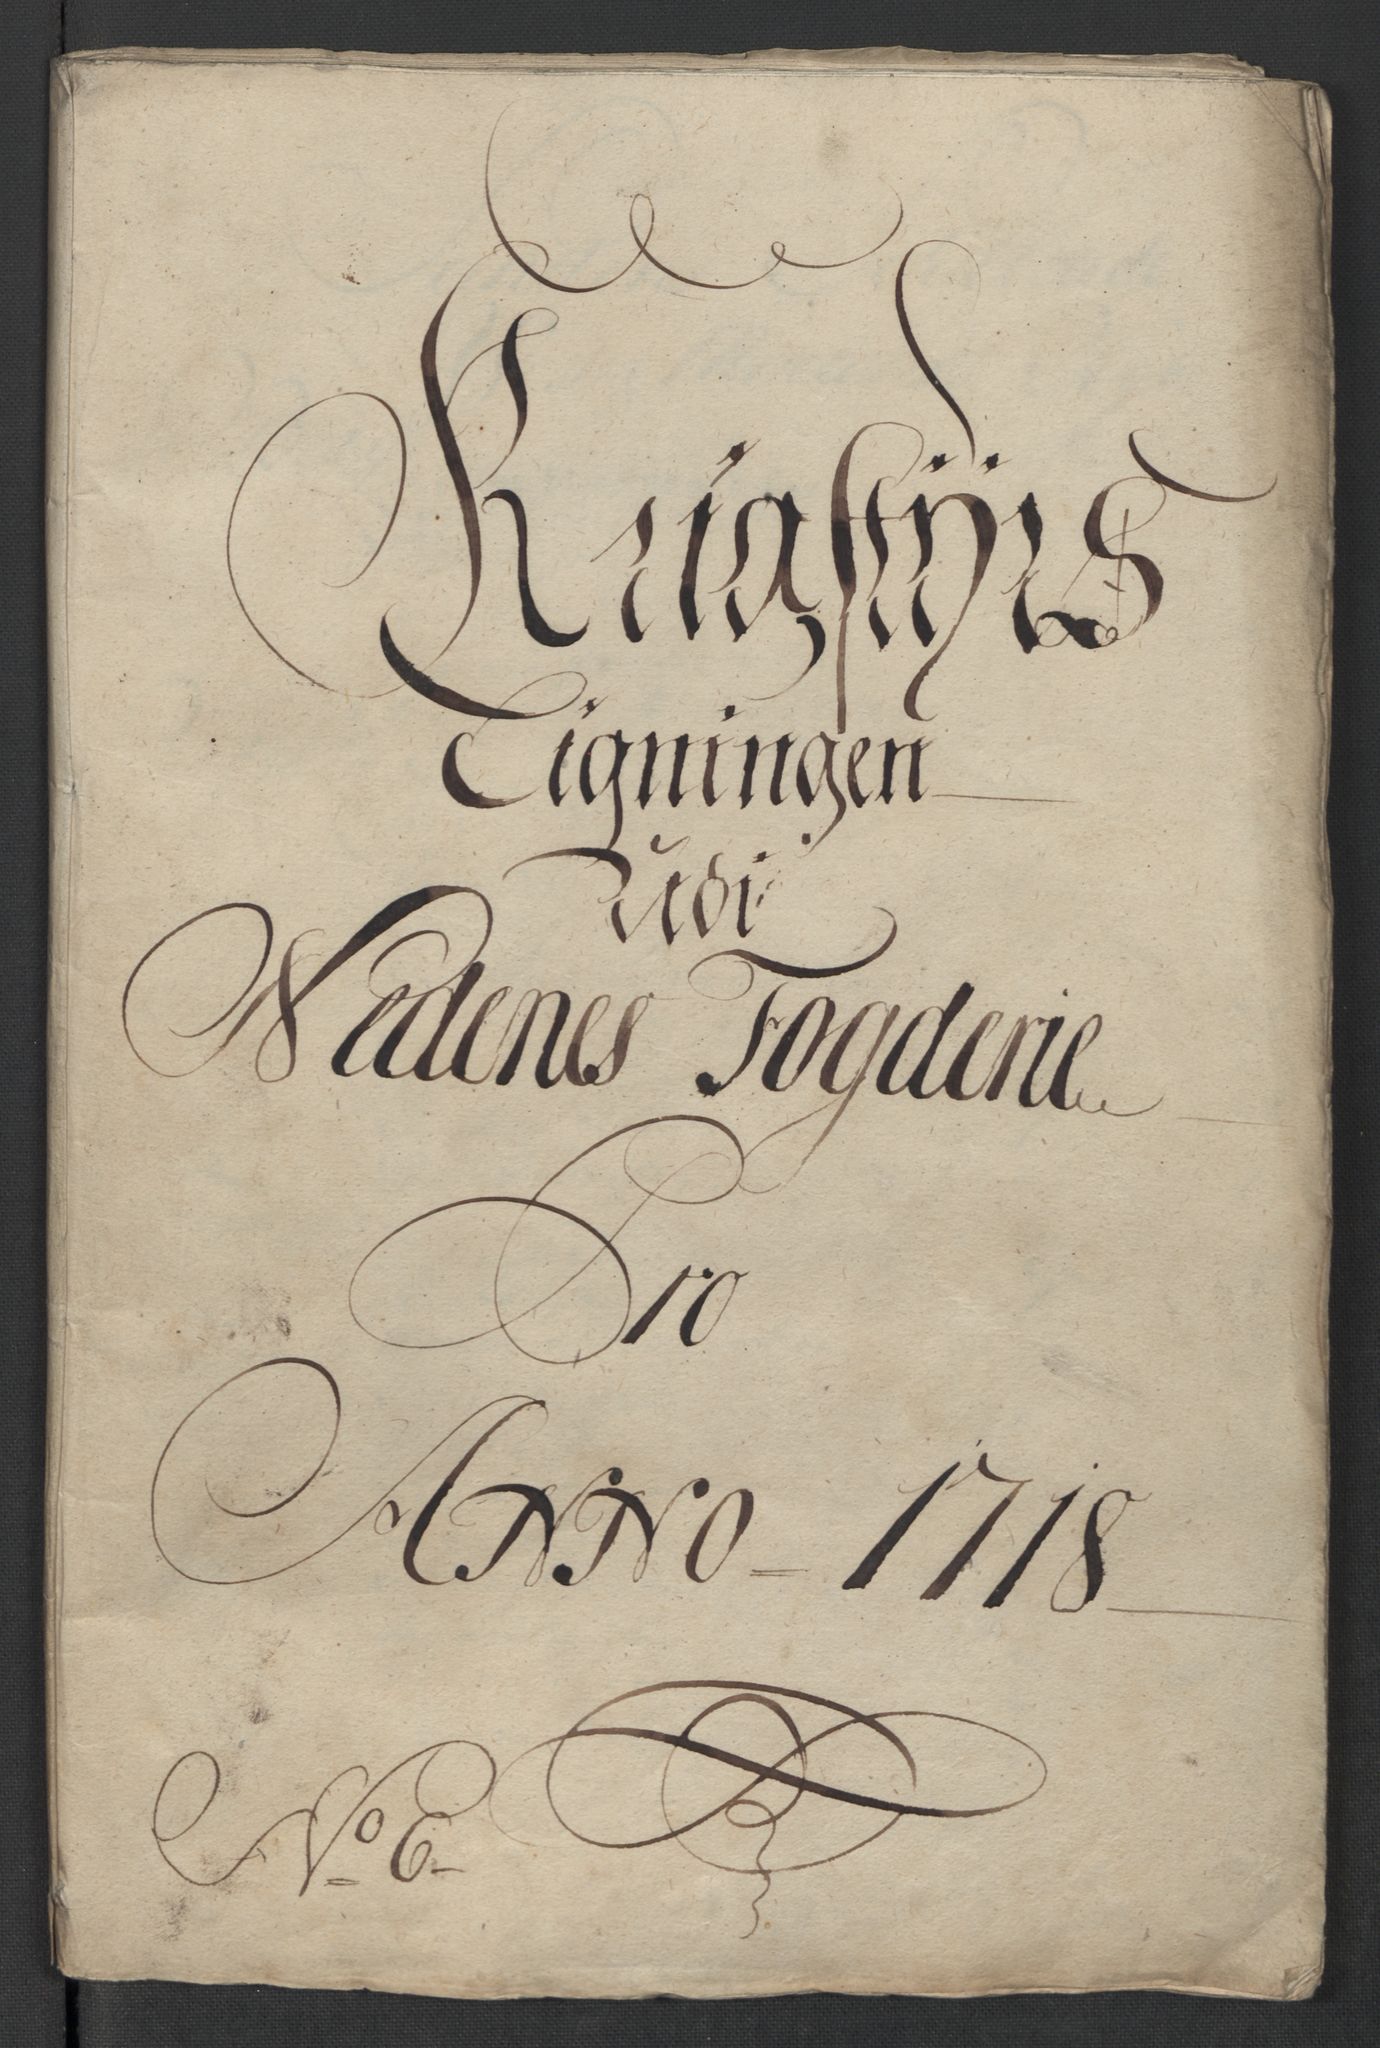 Krigstÿrs
Ligningen
Udi
Nedenes Fogderie
Pro
Anno - 1718
No 6